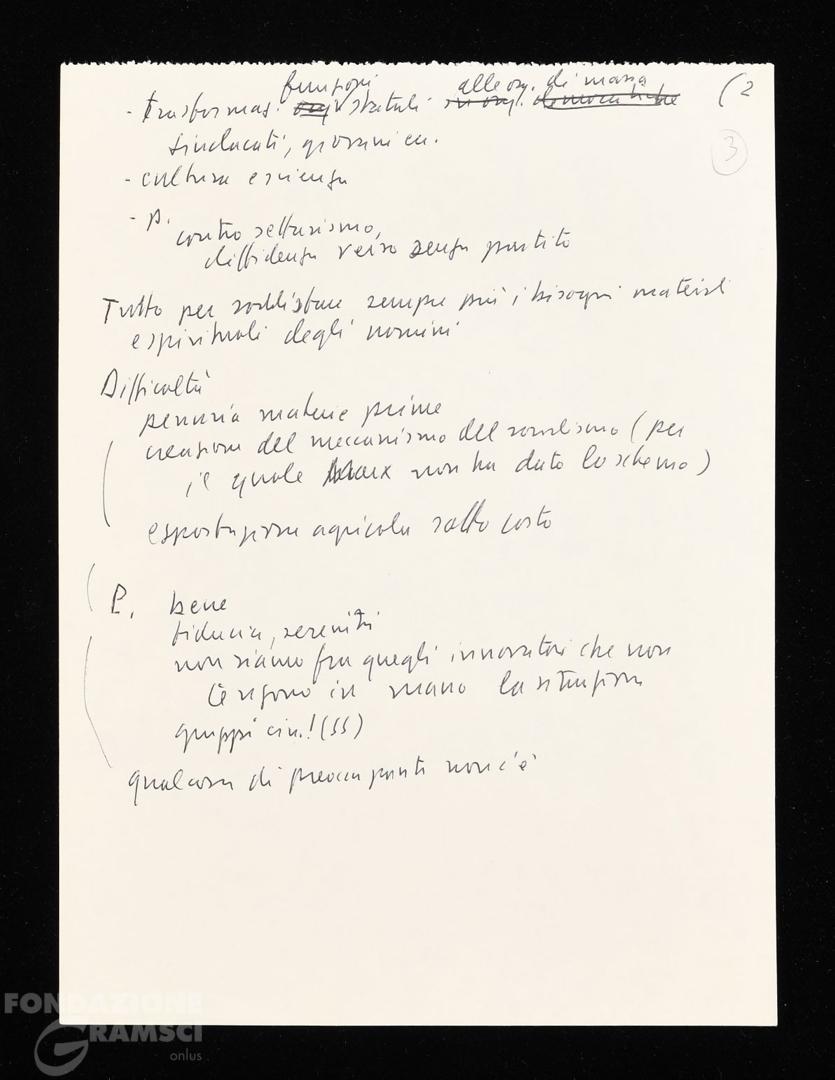 funzioni alle org. di massa (2
- trasformaz. statali
sindacati, giovani ecc. 3
- cultura e scienza
- P.
contro settarismo,
diffidenza verso senza partito
Tutto per soddisfare sempre più i bisogni materiali
e spirituali degli uomini
Difficoltà
penuria materie prime
creazione del meccanismo del socialismo (per
il quale Marx non ha dato lo schema)
esportazione agricola sotto costo
P. bene
fiducia, serenità
non siamo fra quegli innovatori che non
tengono in mano la situazione
gruppi cin.! (SS)
qualcosa di preoccupante non c'è
FONDAZIONE
GRAMSCI
onlus